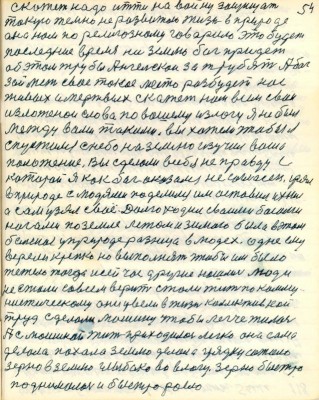 54
скажет надо итти на войну защищат
такую темно не развитою жизь в природе
оно нам по религозному говарило это будет
последние время на землю бог придет
об этом трубы Ангелская за трубят А бог
займет свое такое место разбудет нас
живых и мертвых скажет нам всем свои
изложеной слова по вашему изложу Я не был
между вами таким. вы хотели чтобы я
спустился с небо на землю изучил ваше
положение. Вы сделали в небя не правду с
которой я как бог оказалс не согласен,
в природе с людями поделили им оставил ихнея
а сам узял свае Долго ходил своими босыми
ногами по земле летом и зимою было в таком
болсная у природе разница в людех. одне ему
верели крепко но выполняет чтобы им было
тепло тогда и сей час другие нашлис люди
не стали совсем верит стали жит по комму
нистическому они увели в жизь колективной
труд сделали машину чтобы легче жилос
А с машиной жит приходилос легко она сама
делала пахала землю делала грядку сажала
зерно в землю глыбоко во влагу. зерно быстро
поднималос и быстро росло